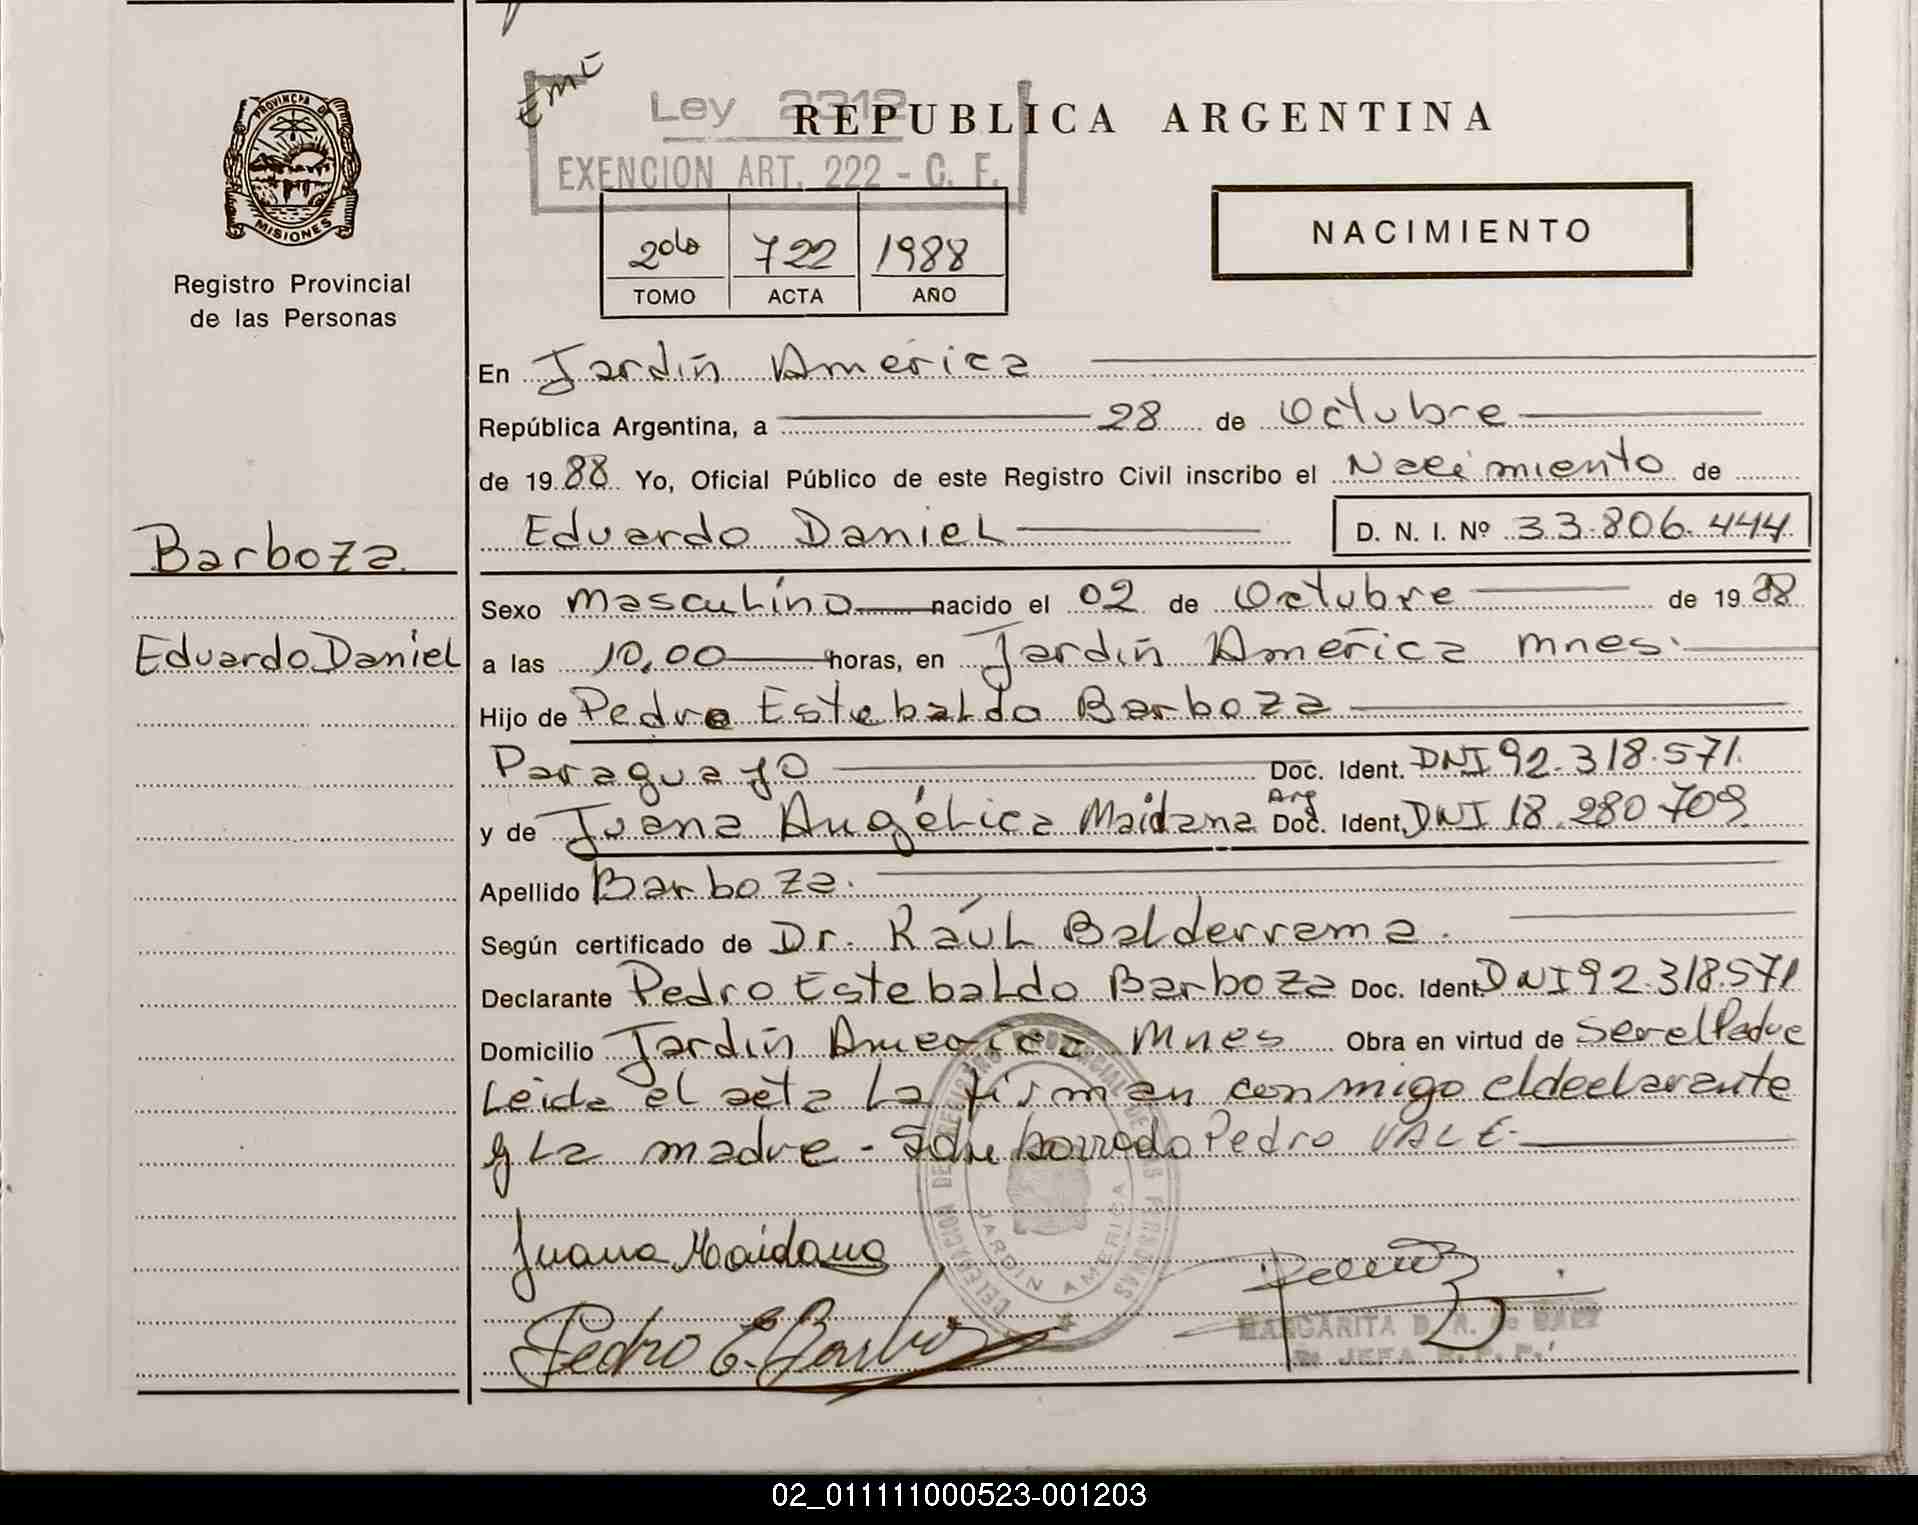 PROVINCIA DE
MISIONES
Registro Provincial
de las Personas
Ley 2312
EXENCION ART. 222 - C. F.
REPUBLICA ARGENTINA
NACIMIENTO
2do 722 1988
TOMO ACTA AÑO
En Jardín América
República Argentina, a 28 de Octubre
de 1988 Yo, Oficial Público de este Registro Civil inscribo el Nacimiento de
Eduardo Daniel D. N. I. Nº 33.806.444
Barboza
Eduardo Daniel
Sexo masculino nacido el 02 de Octubre de 1988
a las 10,00 horas, en Jardín América mnes.
Hijo de Pedro Estebaldo Barboza
Paraguayo Doc. Ident. DNI 92.318.571.
y de Juana Angélica Maidana Arg Doc. Ident. DNI 18.280.709
Apellido Barboza.
Según certificado de Dr. Raúl Balderrama.
Declarante Pedro Estebaldo Barboza Doc. Ident. DNI 92.318.571
Domicilio Jardín América Mnes Obra en virtud de Ser el Padre
Leida el acta la firman conmigo el declarante
y La madre - Sobre borrado Pedro VALE.
DELEGACION DE REGISTRO PROVINCIAL DE LAS PERSONAS
JARDIN AMERICA
Juana Maidana
Pedro E. Barboza
MARGARITA D. R. de BAEZ
JEFA R. P. P.
02_011111000523-001203